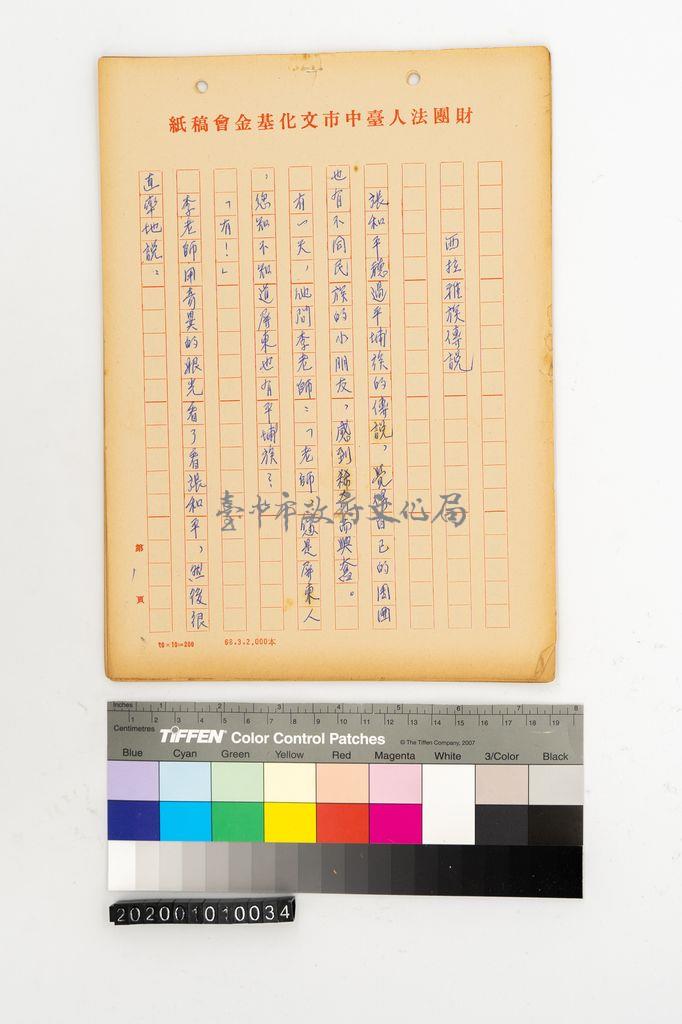 財團法人臺中市文化基金會稿紙
西拉雅族傳說
張和平聽過平埔族的傳說，覺得自己的周圍
也有不同民族的小朋友，感到稀奇而興奮。
有一天，他問李老師：「老師，您是屏東人
，您知不知道屏東也有平埔族？
「有！」
李老師用奇異的眼光看了看張和平，然後很
直率地說：
第1頁
20×10=200
68.3.2,000本
臺中市政府文化局
Inches 1 2 3 4 5 6 7 8
Centimetres 1 2 3 4 5 6 7 8 9 10 11 12 13 14 15 16 17 18 19
TIFFEN Color Control Patches © The Tiffen Company, 2007
Blue Cyan Green Yellow Red Magenta White 3/Color Black
202001010034